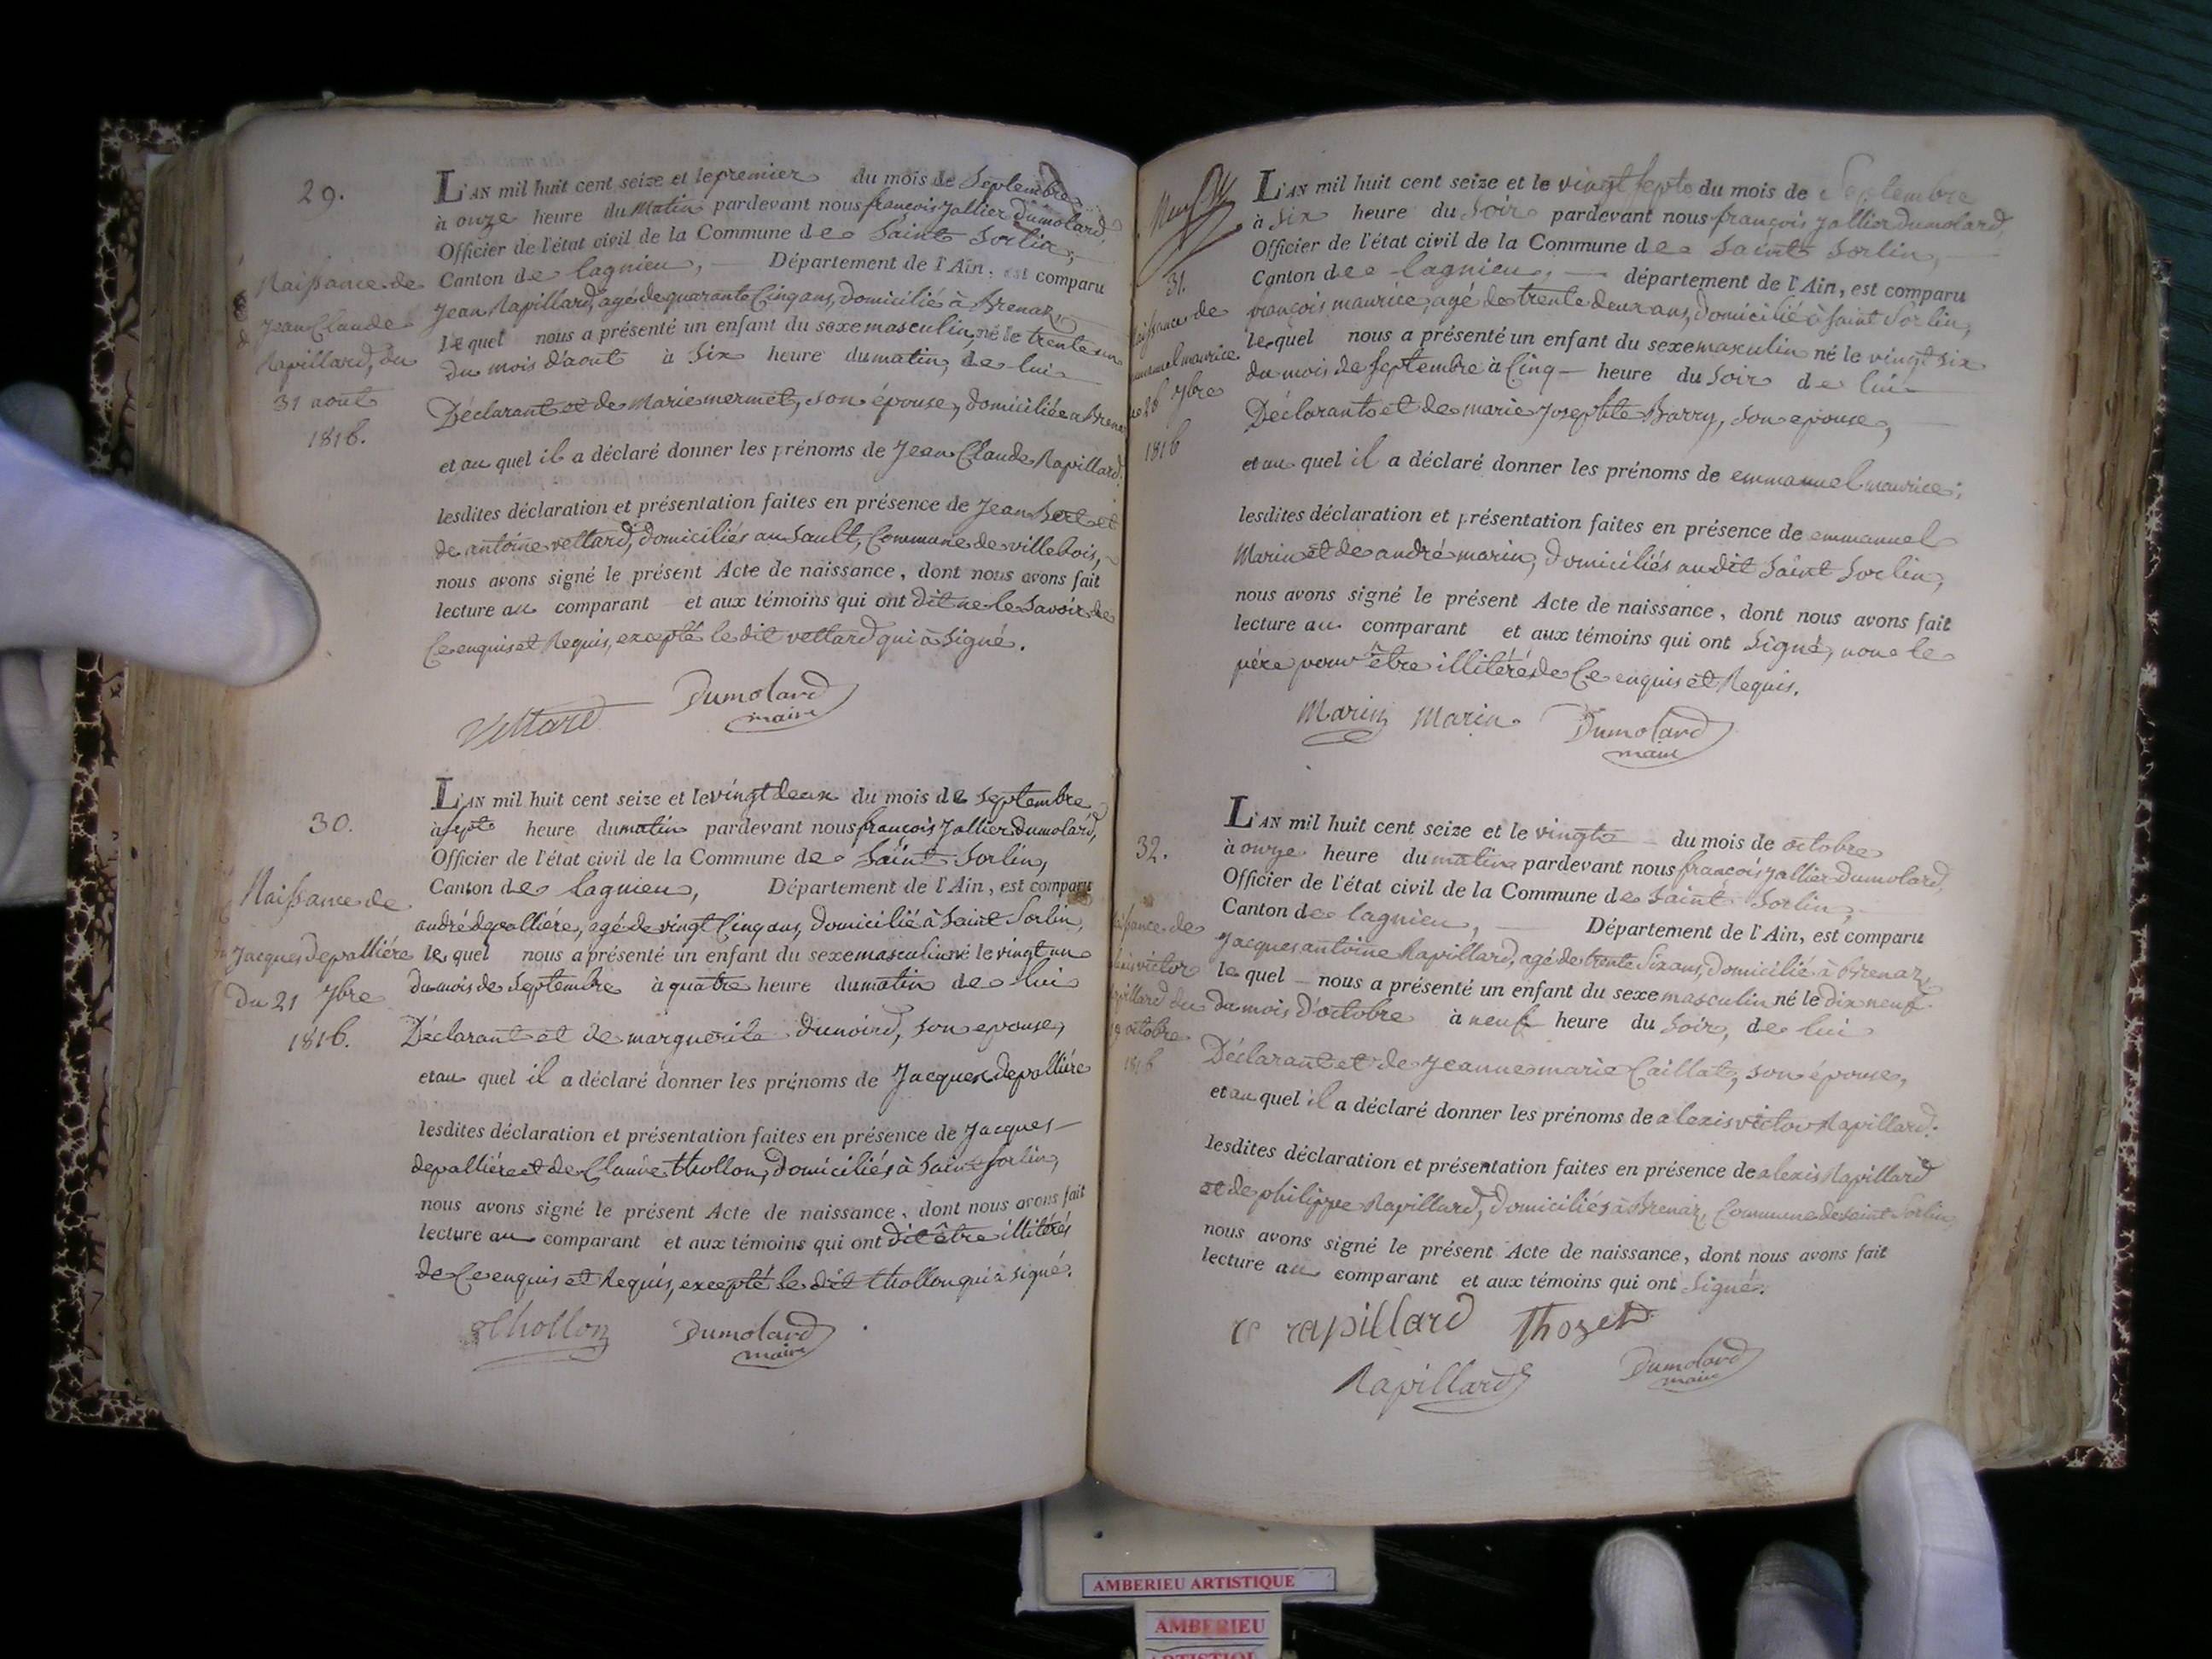 29.
Naissance de
Jean Claude
Rapillard, du
31 aout
1816.
L'AN mil huit cent seize et le premier du mois de Septembre
à onze heure du Matin pardevant nous françois Jallier Dumolard,
Officier de l'état civil de la Commune de Saint Sorlin,
Canton de lagnieu, Département de l'Ain, est comparu
Jean Rapillard, agé de quarante Cinq ans, domicilié à Brenaz,
Lequel nous a présenté un enfant du sexe masculin, né le trente un
du mois d'aout à Six heure du matin, de lui
Déclarant et de Marie mermet, son épouse, domiciliée a Brenaz
et au quel il a déclaré donner les prénoms de Jean Claude Rapillard.
lesdites déclaration et présentation faites en présence de Jean et
de antoine vettard, domiciliés au Sault, Commune de villebois,
nous avons signé le présent Acte de naissance, dont nous avons fait
lecture au comparant et aux témoins qui ont dit ne le Savoir de
Ce enquis et Requis, excepté le dit vettard qui à Signé.
Vettard Dumolard
maire
30.
Naissance de
Jacques depallière
Du 21 7bre
1816.
L'AN mil huit cent seize et le vingt deux du mois de Septembre
à sept heure du matin pardevant nous françois Jallier Dumolard,
Officier de l'état civil de la Commune de Saint Sorlin,
Canton de lagnieu, Département de l'Ain, est comparu
andré depallière, agé de vingt Cinq ans, domicilié à Saint Sorlin,
le quel nous a présenté un enfant du sexe masculin né le vingt un
du mois de Septembre à quatre heure du matin de lui
Déclarant et de marguerite Dunoird, son epouse,
et au quel il a déclaré donner les prénoms de Jacques depallière
lesdites déclaration et présentation faites en présence de Jacques
depallière et de Claude thollon, domiciliés à Saint Sorlin,
nous avons signé le présent Acte de naissance, dont nous avons fait
lecture au comparant et aux témoins qui ont dit être illitérés
de Ce enquis et Requis, excepté le dit thollon qui à Signé.
thollon Dumolard
maire
31.
Naissance de
emmanuel maurice
du 26 7bre
1816
L'AN mil huit cent seize et le vingt sept du mois de Septembre
à Six heure du Soir pardevant nous françois Jallier Dumolard,
Officier de l'état civil de la Commune de Saint Sorlin,
Canton de lagnieu, département de l'Ain, est comparu
françois maurice, agé de trente deux ans, domicilié à Saint Sorlin,
lequel nous a présenté un enfant du sexe masculin né le vingt Six
du mois de Septembre à Cinq heure du Soir de lui
Déclarant et de marie Josephte Barry, son epouse,
et au quel il a déclaré donner les prénoms de emmanuel maurice;
lesdites déclaration et présentation faites en présence de emmanuel
Marin et de andré marin, domiciliés au dit Saint Sorlin,
nous avons signé le présent Acte de naissance, dont nous avons fait
lecture au comparant et aux témoins qui ont Signé, non le
père pour être illitéré, de Ce enquis et Requis.
Marin Marin Dumolard
maire
32.
Naissance de
alexis victor
Rapillard du
19 octobre
1816
L'AN mil huit cent seize et le vingt du mois de octobre
à onze heure du matin pardevant nous françois Jallier Dumolard,
Officier de l'état civil de la Commune de Saint Sorlin,
Canton de lagnieu, Département de l'Ain, est comparu
Jacques antoine Rapillard, agé de trente Six ans, domicilié à Brenaz,
le quel nous a présenté un enfant du sexe masculin né le dix neuf
du mois d'octobre à neuf heure du Soir, de lui
Déclarant et de Jeanne marie Caillat, son épouse,
et au quel il a déclaré donner les prénoms de alexis victor Rapillard.
lesdites déclaration et présentation faites en présence de alexis Rapillard
et de philippe Rapillard, domiciliés à Brenaz, Commune de Saint Sorlin,
nous avons signé le présent Acte de naissance, dont nous avons fait
lecture au comparant et aux témoins qui ont Signé.
rapillard
Rapillard Dumolard
maire
AMBERIEU ARTISTIQUE
AMBERIEU
ARTISTIQUE